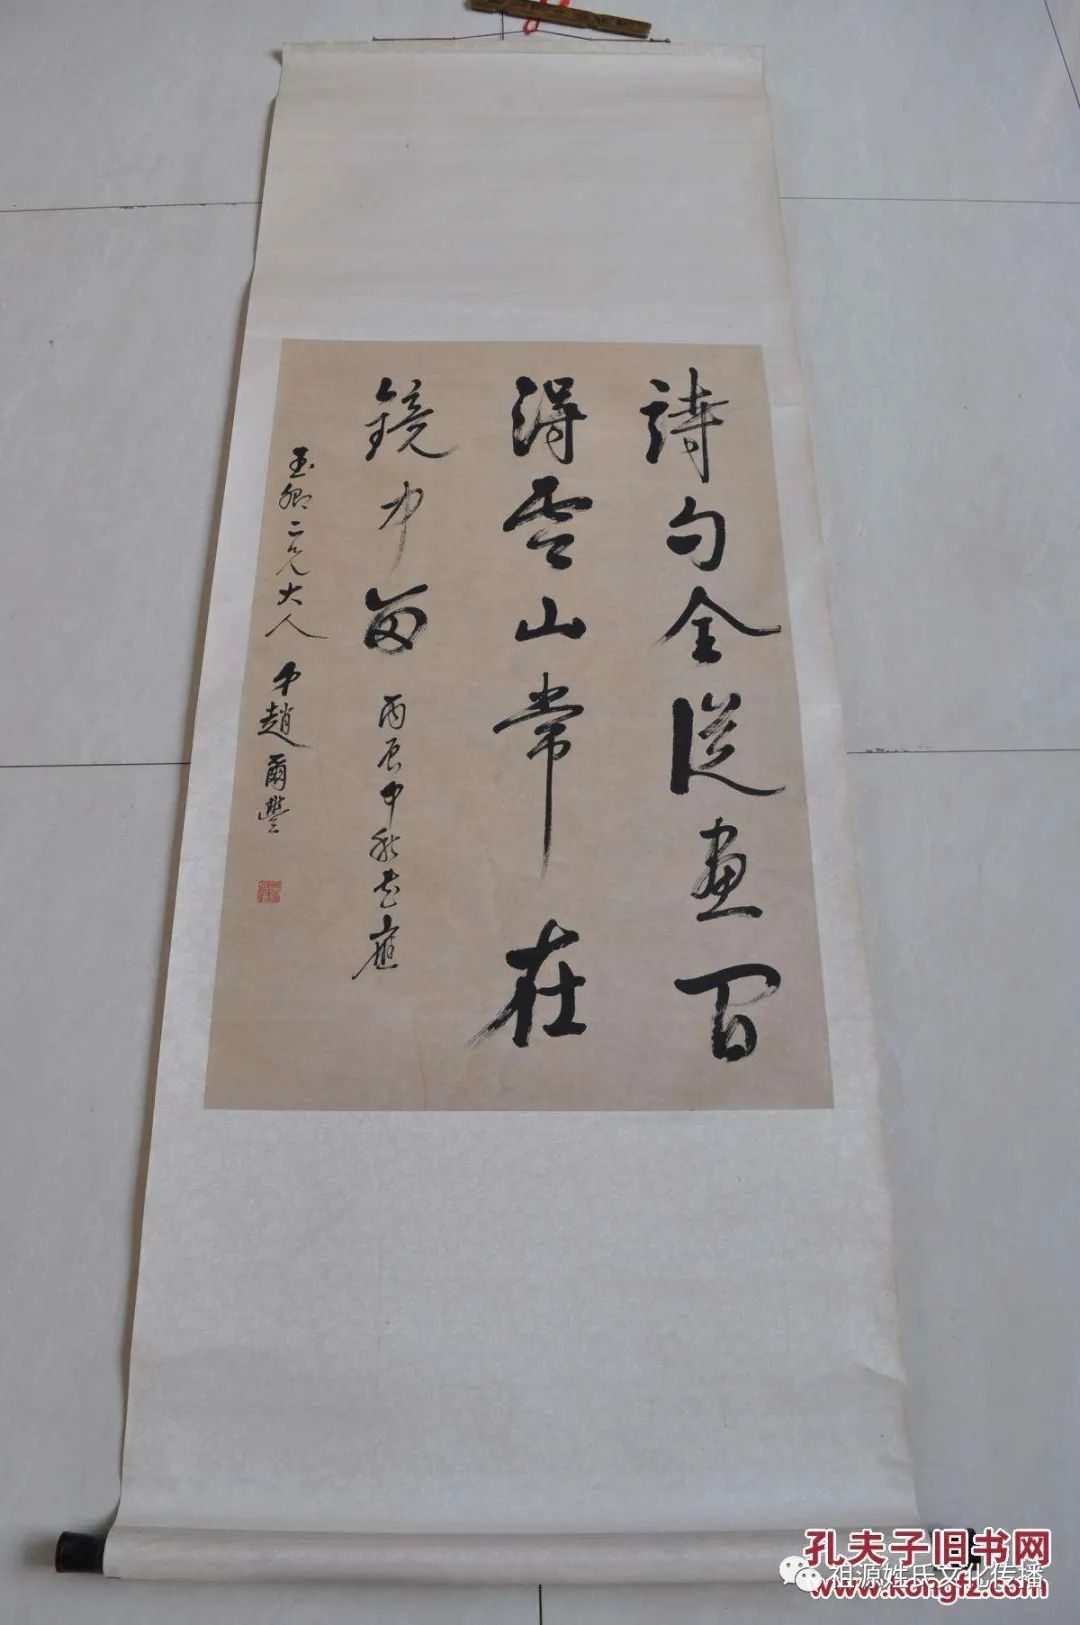 詩句全從畫百
得雲山常在
鏡中留
丙辰中秋書應
玉卿二兄大人
弟趙爾豐
孔夫子旧书网
祖源姓氏文化传播
www.kongfz.com